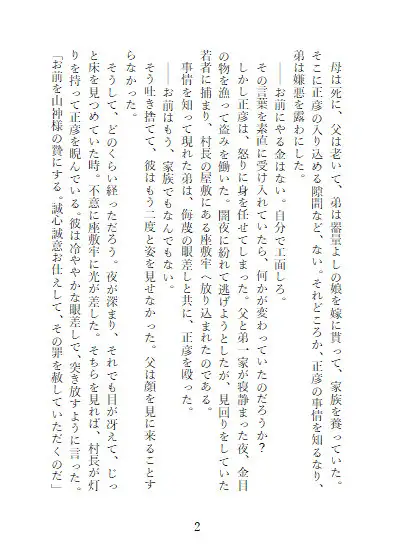 母は死に、父は老いて、弟は器量よしの娘を嫁に貰って、家族を養っていた。
そこに正彦の入り込める隙間など、ない。それどころか、正彦の事情を知るなり、
弟は嫌悪を露わにした。
――お前にやる金はない。自分で工面しろ。
その言葉を素直に受け入れていたら、何かが変わっていたのだろうか？
しかし正彦は、怒りに身を任せてしまった。父と弟一家が寝静まった夜、金目
の物を漁って盗みを働いた。闇夜に紛れて逃げようとしたが、見回りをしていた
若者に捕まり、村長の屋敷にある座敷牢へ放り込まれたのである。
事情を知って現れた弟は、侮蔑の眼差しと共に、正彦を殴った。
――お前はもう、家族でもなんでもない。
そう吐き捨てて、彼はもう二度と姿を見せなかった。父は顔を見に来ることす
らなかった。
そうして、どのくらい経っただろう。夜が深まり、それでも目が冴えて、じっ
と床を見つめていた時。不意に座敷牢に光が差した。そちらを見れば、村長が灯
りを持って正彦を睨んでいる。彼は冷ややかな眼差しで、突き放すように言った。
「お前を山神様の贄にする。誠心誠意お仕えして、その罪を赦していただくのだ」
2